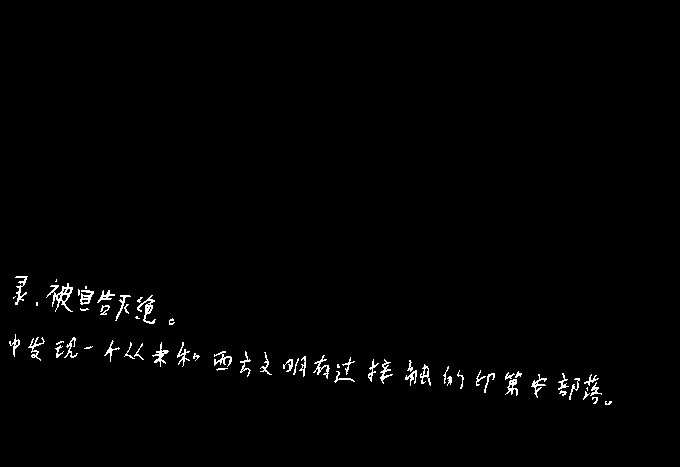 录,被宣告灭绝。
中发现一个从未和西方文明有过接触的印第安部落。